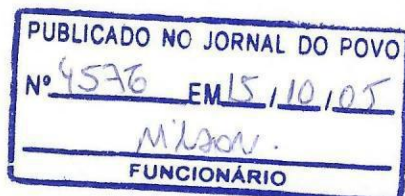 PUBLICADO NO JORNAL DO POVO
Nº 4576 EM 15 / 10 / 05
Milson.
FUNCIONÁRIO